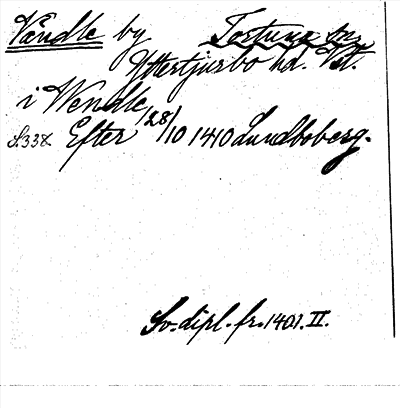 Vändle by Tortuna sn
Yttertjurbo hd. Vstl.
i Wendle
S.338 Efter 28/10 1410 Lundboberg.
Sv. dipl. fr. 1401. II.